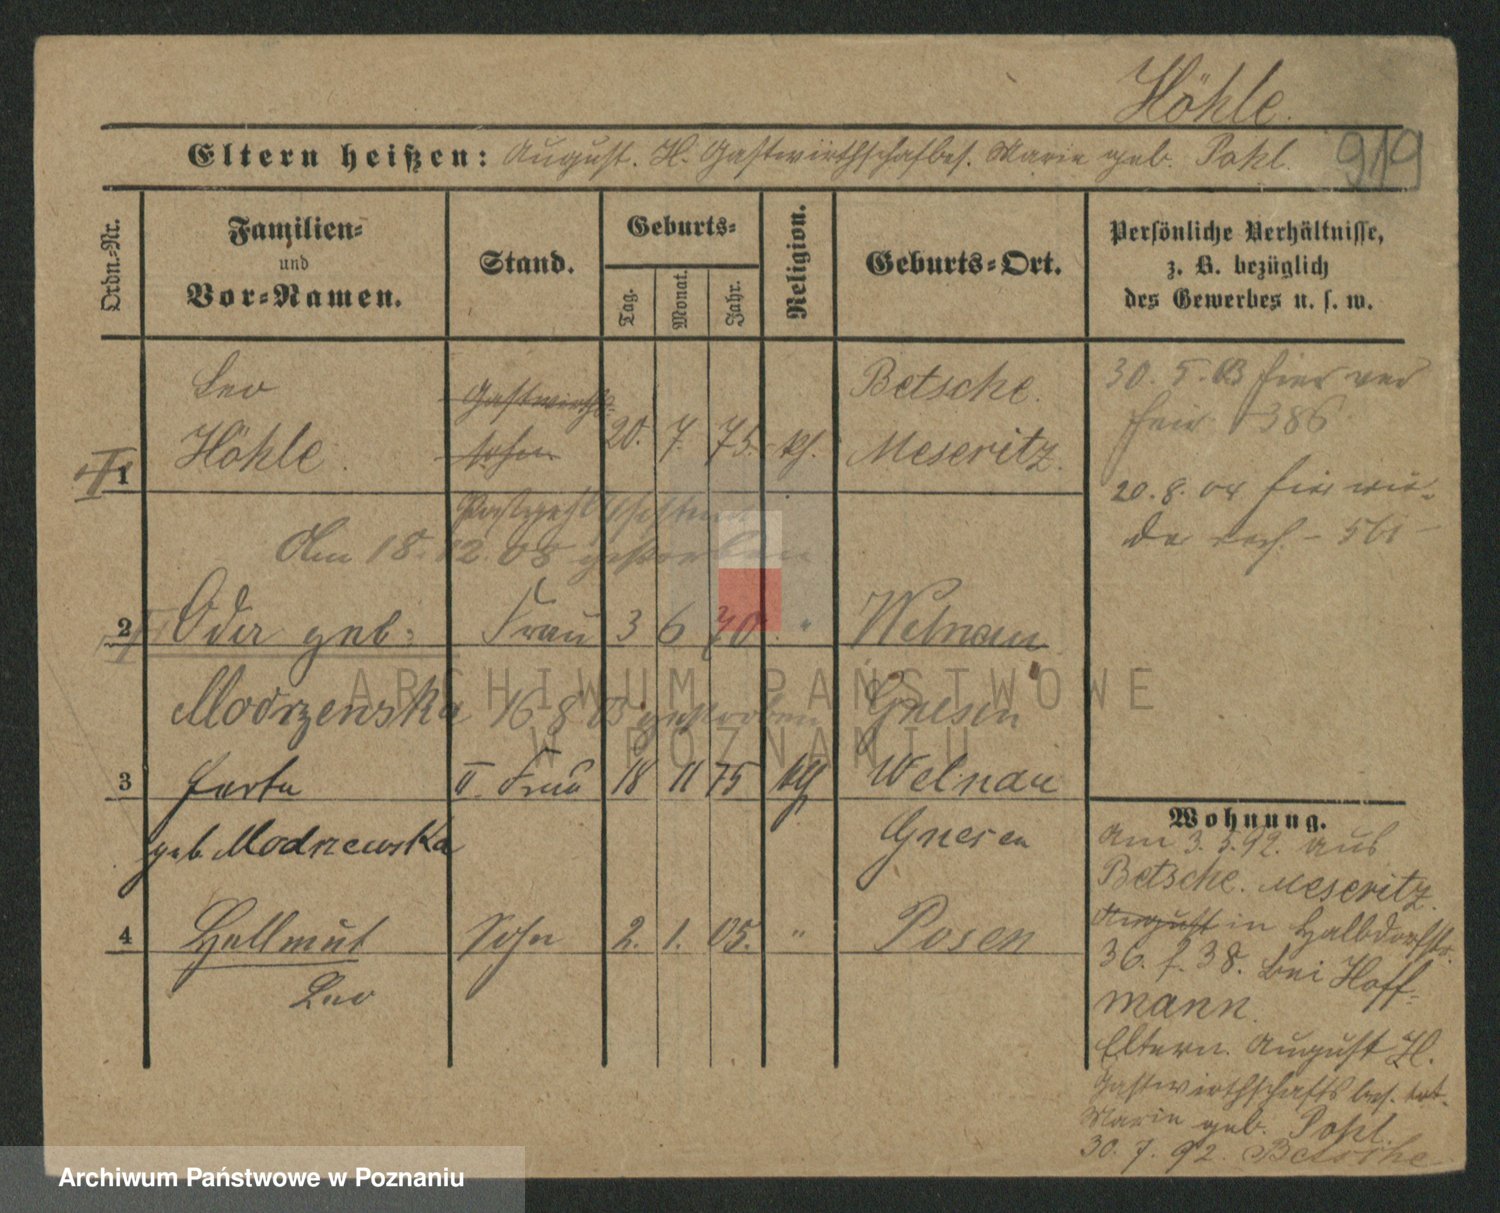 Höhle.
919
Eltern heißen: August. H. Gastwirthschafbes. Marie geb. Pohl.
Ordn.-Nr.
Familien-
und
Vor-Namen.
Stand.
Geburts-
Tag.
Monat.
Jahr.
Religion.
Geburts-Ort.
Persönliche Verhältnisse,
z. B. bezüglich
des Gewerbes u. s. w.
Leo
Gastwirths
Betsche.
30. 5. 03 hier
386
1
Höhle.
sohn
20. 7. 75. kth.
Meseritz.
20. 8. 04 hier
561
Am 18. 12. 08 gestorben
2
Oder geb:
Frau 3 6 70. "
Welnau
Modrzenska
16. 8. 03 gestorben
Gnesen
3
II. Frau 18 11 75 kth
Welnau
geb. Modrzewska
Gnesen
4
Hellmut
Sohn 2. 1. 05. "
Posen
Leo
Wohnung.
Am 3. 5. 92. aus
Betsche. Meseritz.
August in Halbdorfstr.
36. f. 38. bei Hoff-
mann.
Eltern. August H.
Gastwirthschaftsbes. tot.
Marie geb. Pohl.
30. 7. 92. Betsche
ARCHIWUM PAŃSTWOWE
W POZNANIU
Archiwum Państwowe w Poznaniu